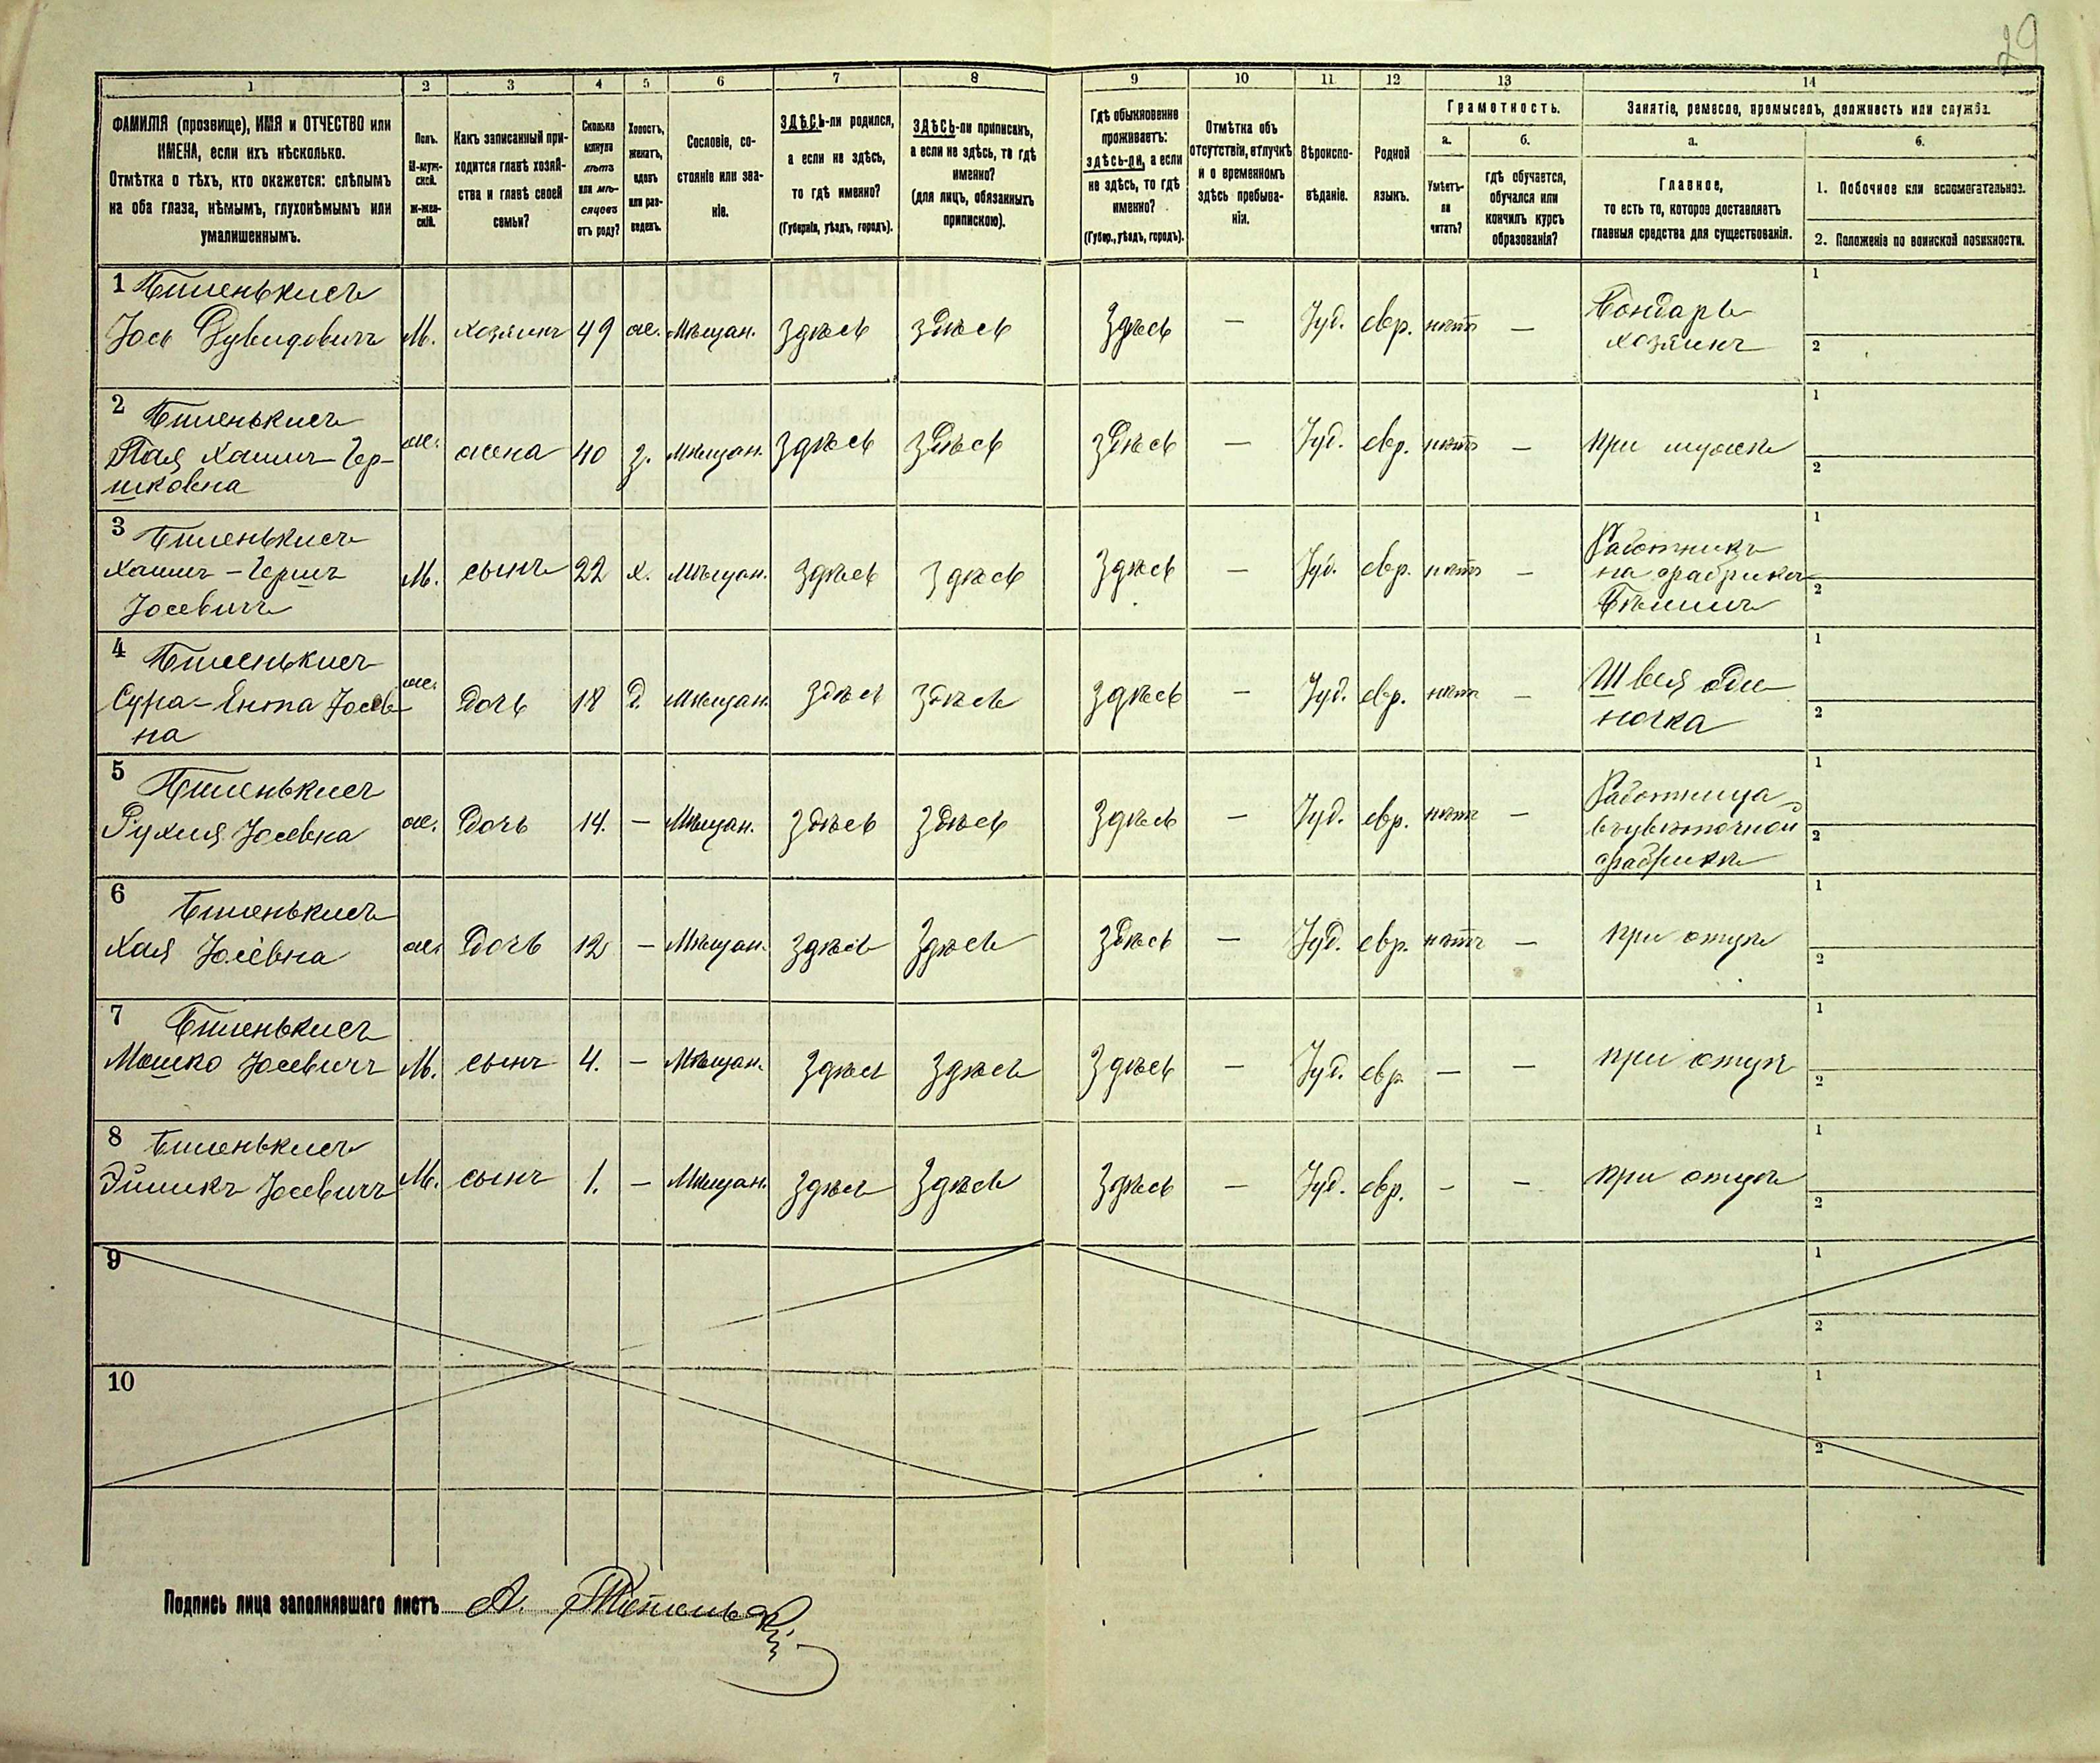 29
1 2 3 4 5 6 7 8 9 10 11 12 13 14
ФАМИЛІЯ (прозвище), ИМЯ и ОТЧЕСТВО или
ИМЕНА, если ихъ нѣсколько.
Отмѣтка о тѣхъ, кто окажется: слѣпымъ
на оба глаза, нѣмымъ, глухонѣмымъ или
умалишеннымъ.
Полъ.
М-муж-
ской.
Ж-жен-
скій.
Какъ записанный при-
ходится главѣ хозяй-
ства и главѣ своей
семьи?
Сколько
минуло
лѣтъ
или мѣ-
сяцевъ
отъ роду?
Холостъ,
женатъ,
вдовъ
или раз-
веденъ.
Сословіе, со-
стояніе или зва-
ніе.
ЗДѢСЬ-ли родился,
а если не здѣсь,
то гдѣ именно?
(Губернія, уѣздъ, городъ).
ЗДѢСЬ-ли приписанъ,
а если не здѣсь, то гдѣ
именно?
(для лицъ, обязанныхъ
припискою).
Гдѣ обыкновенно
проживаетъ:
здѣсь-ли, а если
не здѣсь, то гдѣ
именно?
(Губер., уѣздъ, городъ).
Отмѣтка объ
отсутствіи, отлучкѣ
и о временномъ
здѣсь пребыва-
ніи.
Вѣроиспо-
вѣданіе.
Родной
языкъ.
Грамотность.
а.
Умѣетъ-
ли
читать?
б.
гдѣ обучается,
обучался или
кончилъ курсъ
образованія?
Занятіе, ремесло, промыселъ, должность или служба.
а.
Главное,
то есть то, которое доставляетъ
главныя средства для существованія.
б.
1. Побочное или вспомогательное.
2. Положеніе по воинской повинности.
1
Іось Дувидовичъ М. хозяинъ 49 ж. Мѣщан. здѣсь здѣсь здѣсь — Іуд. евр. нѣтъ — Бондарь
хозяинъ
1
2
2
Хаимъ-Гер-
шковна ж. жена 40 з. Мѣщан. здѣсь здѣсь здѣсь — Іуд. евр. нѣтъ — при мужѣ
1
2
3
Хаимъ-Гершъ
Іосевичъ М. сынъ 22 х. Мѣщан. здѣсь здѣсь здѣсь — Іуд. евр. нѣтъ — Работникъ
на фабрикѣ
1
2
4
Сура-Ента Іосев-
на ж. дочь 18 д. Мѣщан. здѣсь здѣсь здѣсь — Іуд. евр. нѣтъ — Швея оди-
ночка
1
2
5
Рухля Іосевна ж. дочь 14. — Мѣщан. здѣсь здѣсь здѣсь — Іуд. евр. нѣтъ — Работница
въ цвѣточной
фабрикѣ
1
2
6
Хая Іосевна ж. дочь 12 — Мѣщан. здѣсь здѣсь здѣсь — Іуд. евр. нѣтъ — при отцѣ
1
2
7
Мошко Іосевичъ М. сынъ 4. — Мѣщан. здѣсь здѣсь здѣсь — Іуд. евр. — — при отцѣ
1
2
8
Іосевичъ М. сынъ 1. — Мѣщан. здѣсь здѣсь здѣсь — Іуд. евр. — — при отцѣ
1
2
9
1
2
10
1
2
Подпись лица заполнявшаго листъ А.